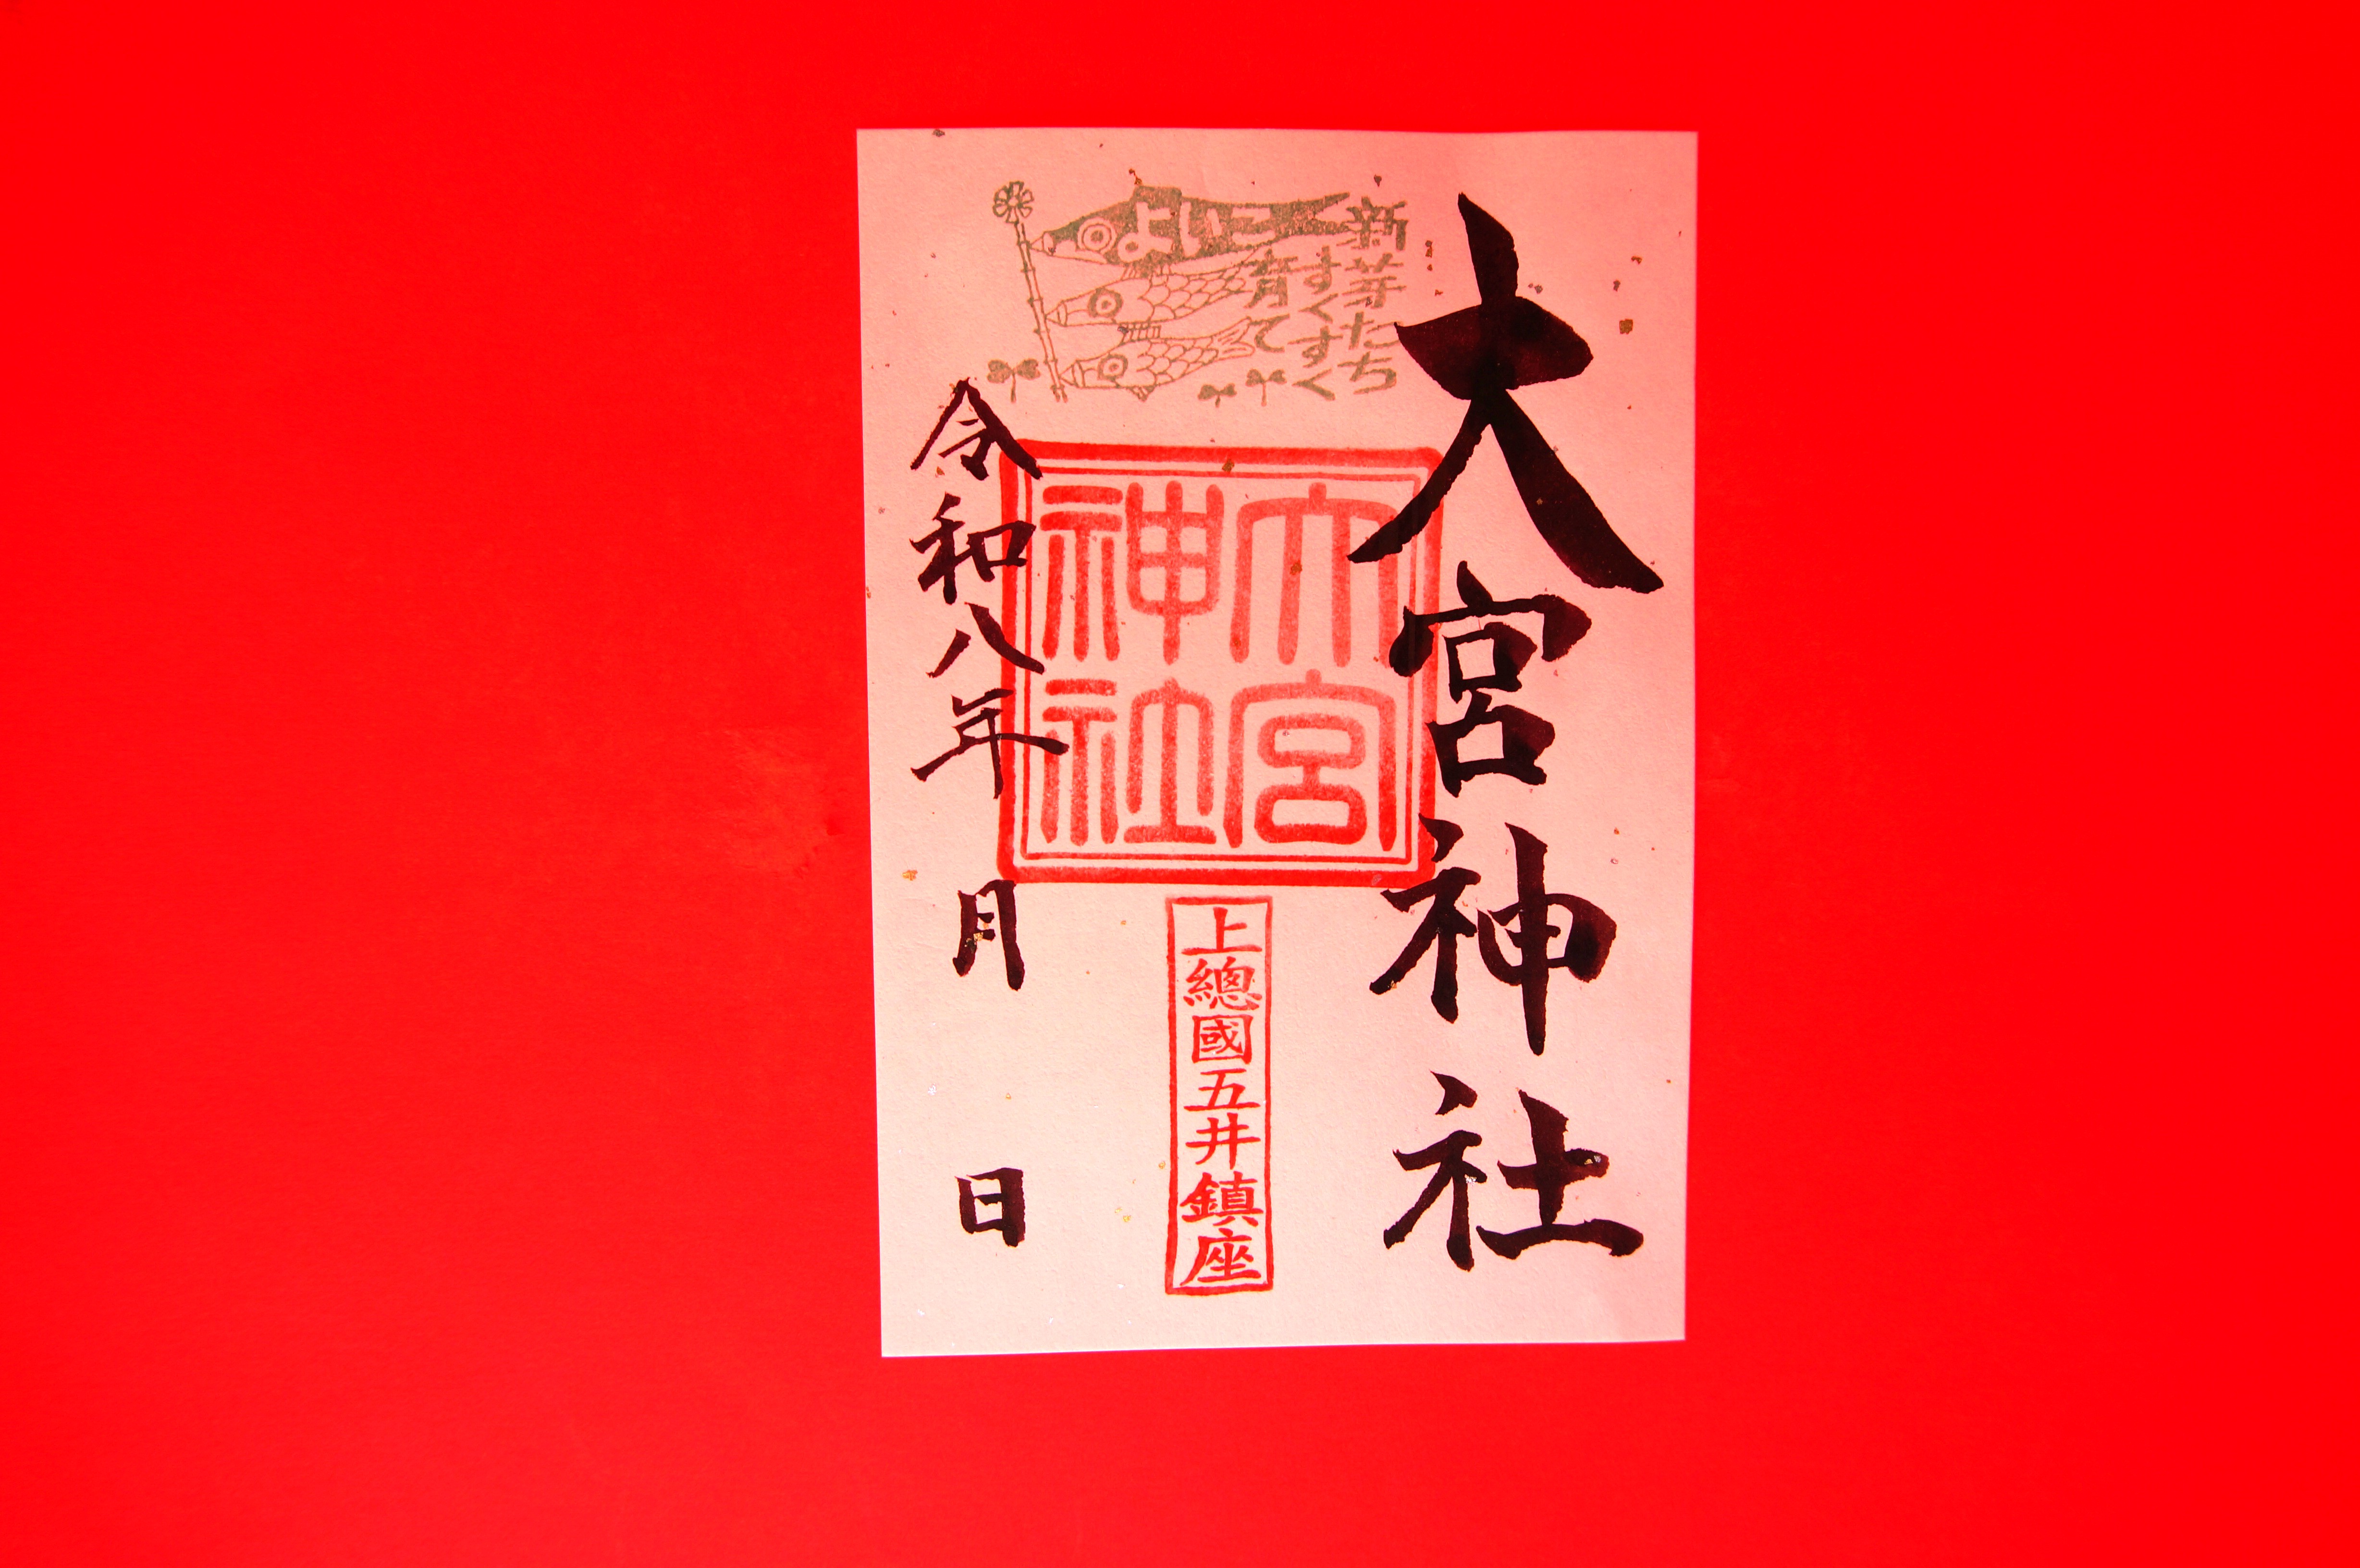 大宮神社
新芽たち
すくすく
育て
よいこ
大宮
神社
上總國五井鎮座
令和八年　月　日